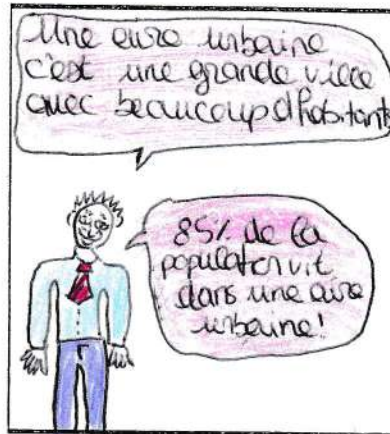 Une aire urbaine
c'est une grande ville
avec beaucoup d'habitants
85% de la
population vit
dans une aire
urbaine!